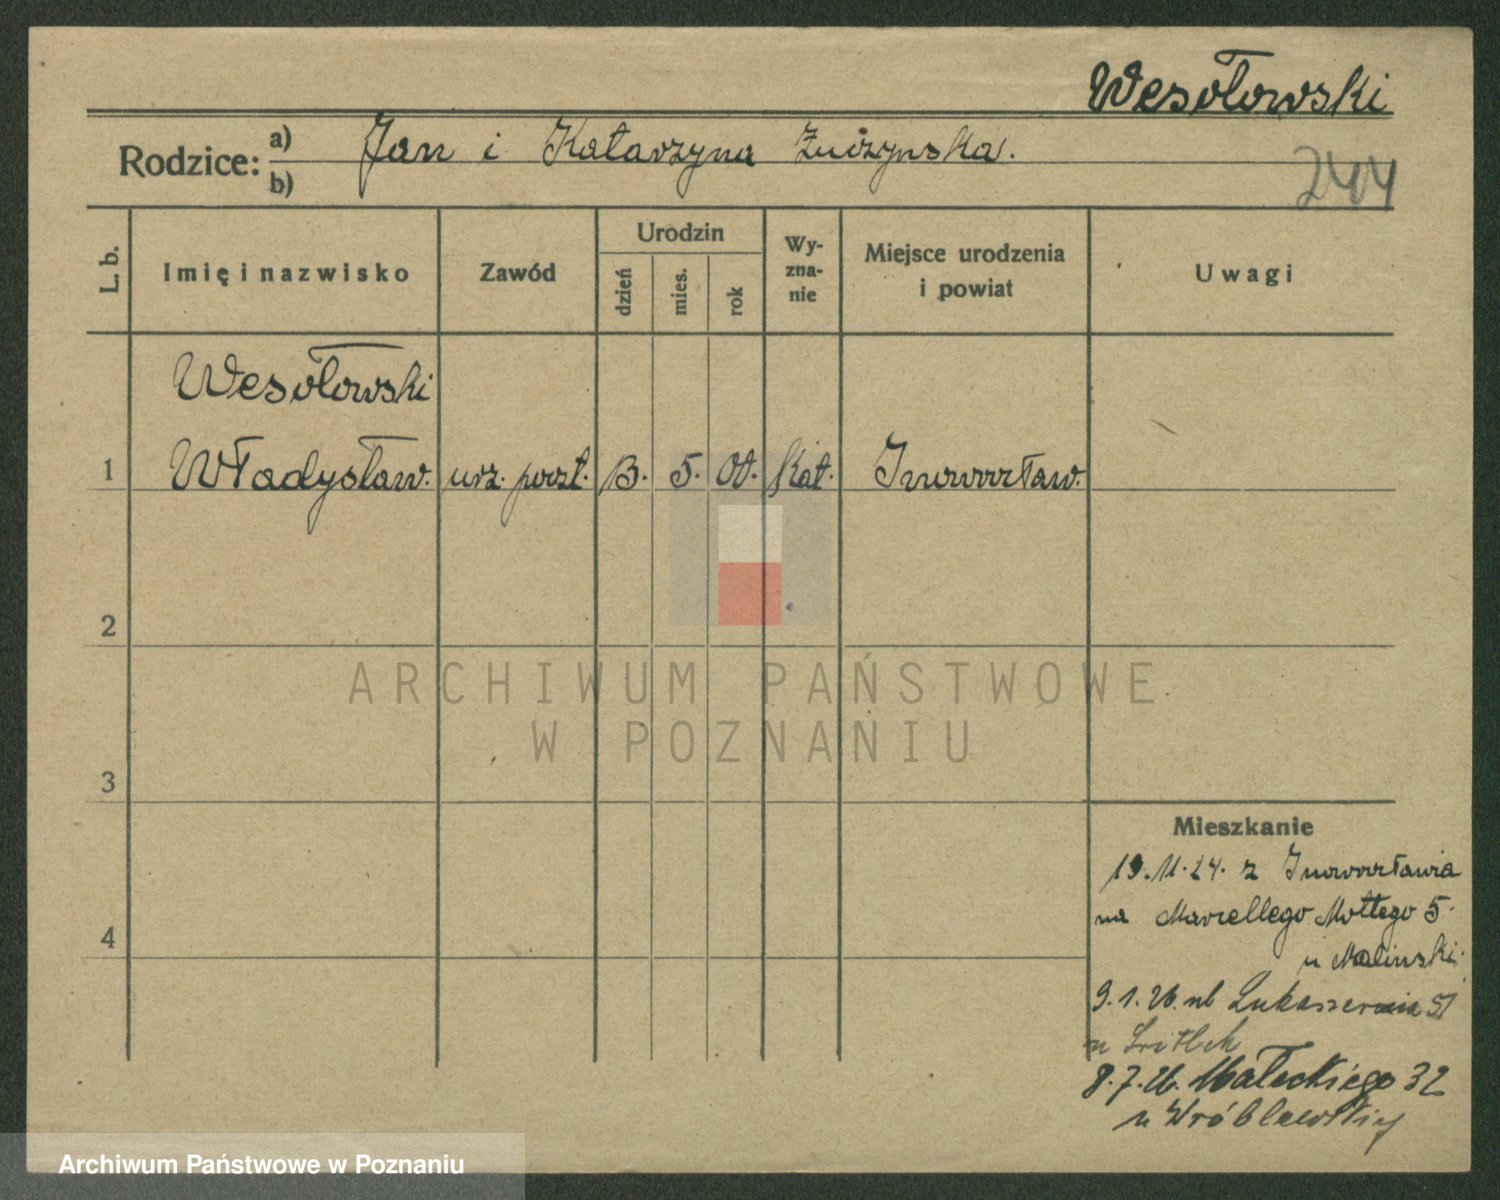 Wesołowski
Rodzice: a) Jan i Katarzyna
b)
244
L. b. Imię i nazwisko Zawód Urodzin dzień mies. rok Wy-zna-nie Miejsce urodzenia i powiat Uwagi
Wesołowski
1 Władysław. urz. poczt. 13. 5. 01. kat. Inowrocław.
2
3
4
Mieszkanie
19.11.24. z Inowrocławia
na Marcellego Mottego 5.
u Malinski.
9.1.26. ul Łukaszewicza
u
8.7.26. Małeckiego 32
u Wróblewskiej
ARCHIWUM PAŃSTWOWE
W POZNANIU
Archiwum Państwowe w Poznaniu